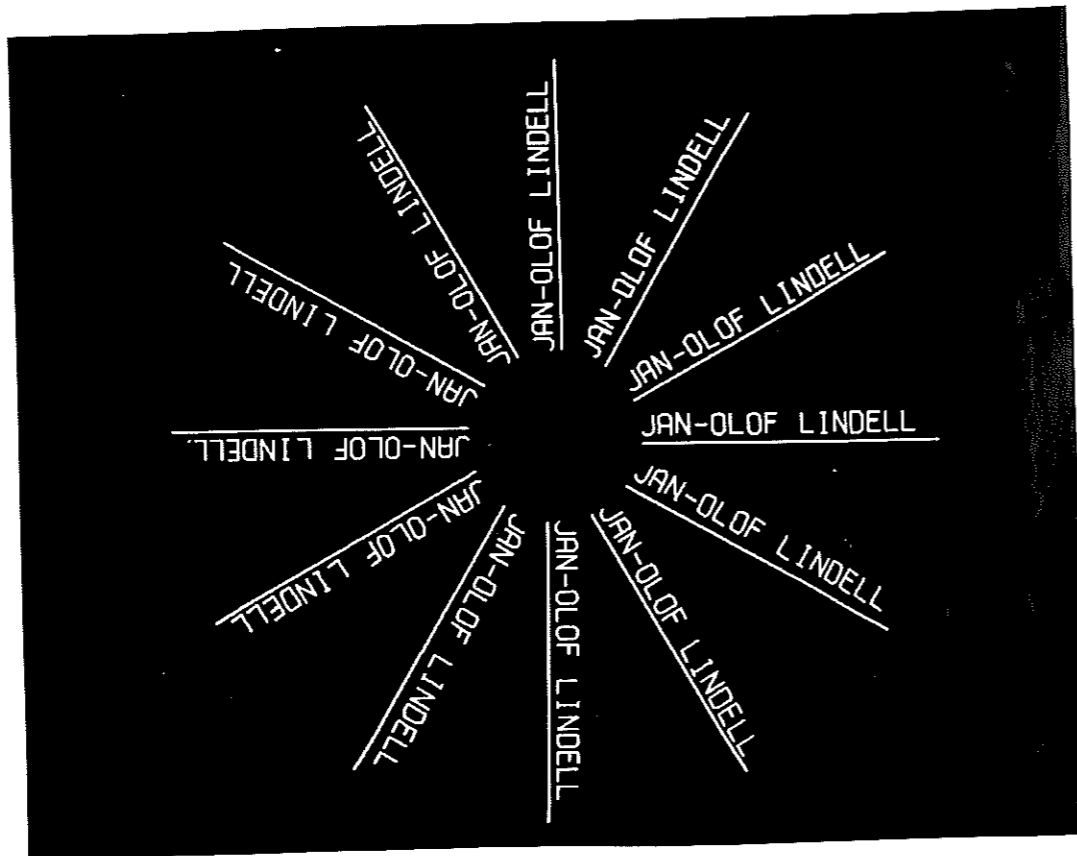 JAN-OLOF LINDELL
JAN-OLOF LINDELL
JAN-OLOF LINDELL
JAN-OLOF LINDELL
JAN-OLOF LINDELL
JAN-OLOF LINDELL
JAN-OLOF LINDELL
JAN-OLOF LINDELL
JAN-OLOF LINDELL
JAN-OLOF LINDELL
JAN-OLOF LINDELL
JAN-OLOF LINDELL